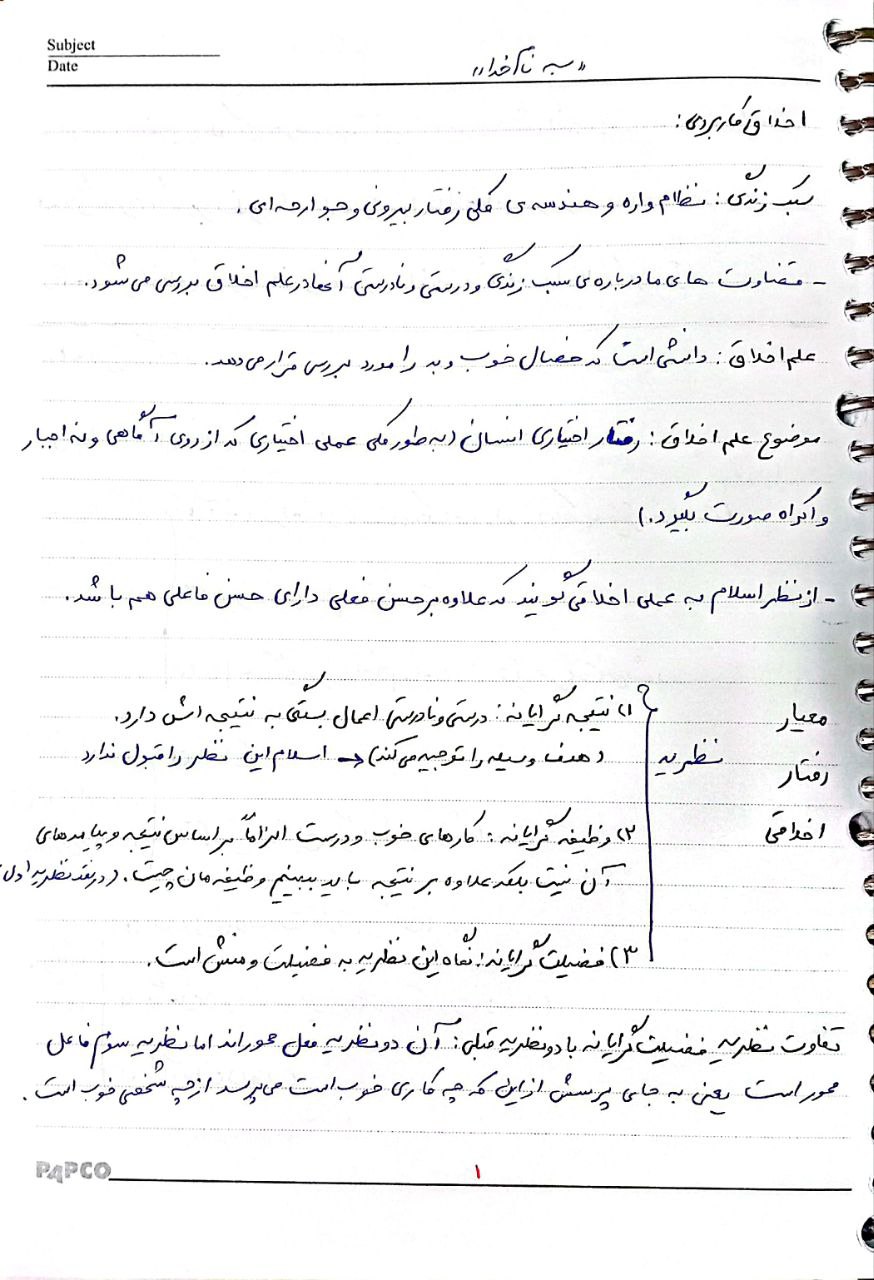 Subject
Date
«به نام خدا»
اخلاق کاربردی:
سبک زندگی: نظام واره و هندسه ی کلی رفتار بیرونی و جوارحه ای.
- قضاوت های ما درباره ی سبک زندگی و درستی و نادرستی آنها در علم اخلاق بررسی می شود.
علم اخلاق: دانشی است که خصال خوب و بد را مورد بررسی قرار می دهد.
موضوع علم اخلاق: رفتار اختیاری انسان (به طور کلی عملی اختیاری که از روی آگاهی و نه اجبار
و اکراه صورت بگیرد.)
- از نظر اسلام به عملی اخلاقی گویند که علاوه بر حسن فعلی دارای حسن فاعلی هم باشد.
معیار رفتار اخلاقی
نظریه
۱) نتیجه گرایانه: درستی و نادرستی اعمال بستگی به نتیجه اش دارد.
(هدف وسیله را توجیه می کند) → اسلام این نظر را قبول ندارد
۲) وظیفه گرایانه: کارهای خوب و درست الزاماً بر اساس نتیجه و پیامدهای
آن نیست بلکه علاوه بر نتیجه باید ببینیم وظیفه مان چیست. (در نقد نظریه اول)
۳) فضیلت گرایانه: نگاه این نظریه به فضیلت و منش است.
تفاوت نظریه فضیلت گرایانه با دو نظریه قبلی: آن دو نظریه فعل محوراند اما نظریه سوم فاعل
محور است یعنی به جای پرسش از این که چه کاری خوب است می پرسد از چه شخصی خوب است.
PAPCO
۱